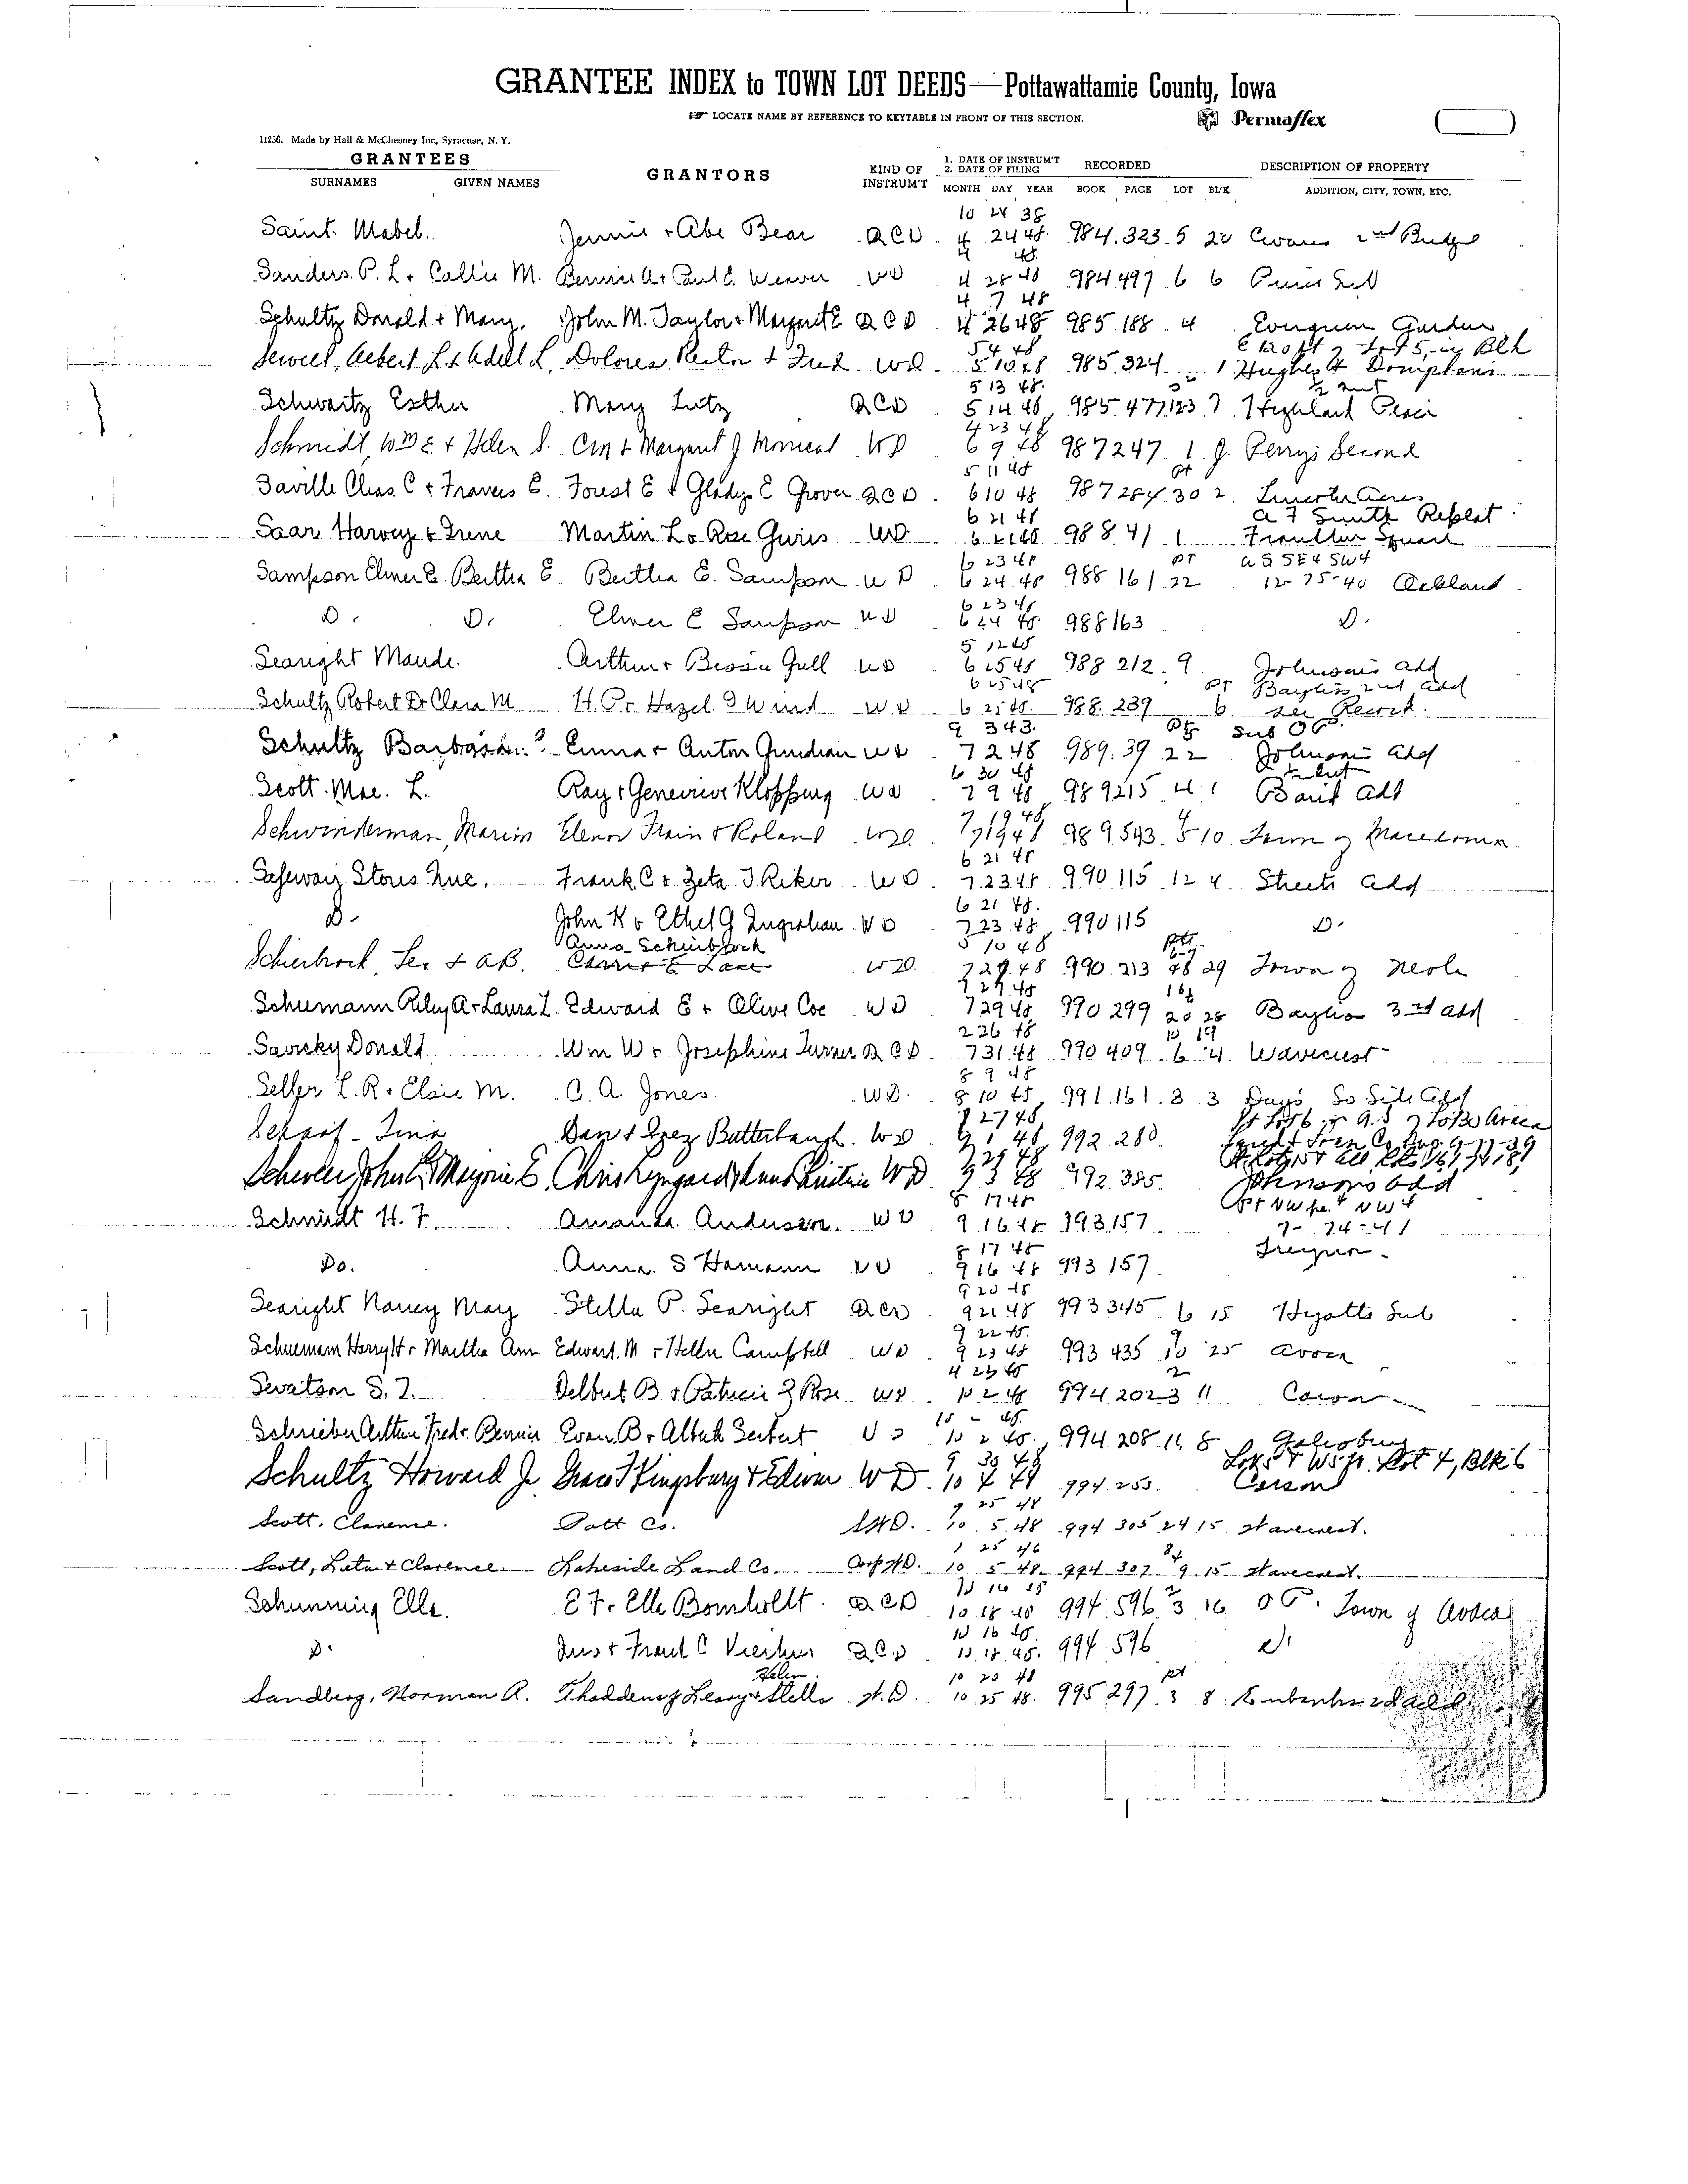 GRANTEE INDEX to TOWN LOT DEEDS—Pottawattamie County, Iowa
LOCATE NAME BY REFERENCE TO KEYTABLE IN FRONT OF THIS SECTION. Permaflex
11286. Made by Hall & McChesney Inc, Syracuse, N. Y.
GRANTEES GRANTORS KIND OF INSTRUM'T 1. DATE OF INSTRUM'T 2. DATE OF FILING RECORDED DESCRIPTION OF PROPERTY
SURNAMES GIVEN NAMES MONTH DAY YEAR BOOK PAGE LOT BL'K ADDITION, CITY, TOWN, ETC.
10 24 38
Saint Mabel. Jennie + Abe Bear QCD 4 24 48 984 323 5 20 2nd
Sanders P. L + Callie M. Bernice A + Paul E. Weaver WD 4 28 48 984 497 6 6
4 7 48
Schultz Donald + Mary. John M. Taylor + Margarite QCD 4 26 48 985 188 4 Evergreen Garden
5 4 48 E 120 ft of Lot 5, in Blk
Albert L + Adell L. Dolores Rector + Fred WD 5 10 48 985 324 1 Hughes & Doniphans
5 13 48
Schwartz Esther Mary Lutz QCD 5 14 48 985 477 123 7 Highland Place
4 23 48
Schmidt, Wm E. + Helen S. Margaret J WD 6 9 48 987 247 1 J. Perrys Second
5 11 48 pt
Saville Chas. C + Frances E. Forest E + Gladys E Grover QCD 6 10 48 987 284 30 2 Lincoln Acres
6 21 48 A F Smith Replat
Saar Harvey & Irene Martin L & Rose Guris WD 6 21 48 988 41 1 Franklin Square
6 23 48 pt SE4 SW4
Sampson Elmer E. Bertha E. Bertha E. Sampson WD 6 24 48 988 161 22 12-75-40 Oakland
6 23 48
D. D. Elmer E Sampson WD 6 24 48 988 163 D.
5 12 48
Searight Maude. Arthur + Bessie Gull WD 6 25 48 988 212 9 Johnsons add
6 25 48 pt Bayliss 2nd add
Schultz Robert D + Clara M. H. P. + Hazel I Wind WD 6 25 48 988 239 6 see Record.
9 3 43 pt Sub OP.
Schultz Barbara Emma + Anton Gundian WD 7 2 48 989 39 22 Johnsons add
6 30 48
Scott Mae. L. Ray + Genevieve Klopping WD 7 9 48 989 215 4 1 Baird add
7 19 48 4
Schwinderman, Marion Elenor Frain + Roland WD. 7 19 48 989 543 5 10 Town of Macedonia
6 21 48
Safeway Stores Inc. Frank C & Zeta J Riker WD 7 23 48 990 115 12 4 Streets add
6 21 48
D. John K & Ethel G Ingraham WD 7 23 48 990 115 D.
Anna Schierbrock 5 10 48 pts 6-7
Schierbrock, Leo + A.B. Carrie E Lane WD. 7 29 48 990 213 48 29 Town of Neola
7 29 48 16½
Schumann Riley A + Laura L. Edward E + Olive Coe WD 7 29 48 990 299 20 28 Bayliss 3rd add
2 26 48 10 19
Savicky Donald Wm W + Josephine Turner QCD. 7 31 48 990 409 6 4 Wavecrest
8 9 48
Seller L. R + Elsie M. C. A. Jones WD. 8 10 48 991 161 3 3 Days So Side Add
8 27 48
Dan + Inez Butterbaugh WD 9 1 48 992 280
John Marjorie E. Chris WD 9 3 48 992 385 Johnsons add
8 17 48 pt NW fr. 4 NW4
Schmidt H. F. Amanda Andersen. WD 9 16 48 993 157 7-74-41
8 17 48 Treynor
Do. Anna. S Hamann WD 9 16 48 993 157
9 20 48
Searight Nancy May Stella P. Searight QCD 9 21 48 993 345 6 15 Hyatts Sub
9 22 48 9
Schueman Harry H + Martha Ann Edward. M + Hellen Campbell WD 9 23 48 993 435 10 25 Avoca
4 23 48 2
S. I. Delbert B. + Patricia J Rose WD 10 2 48 994 202 3 11 Carson
Schrieber Arthur Fred + Bernice Evan. B + WD 10 2 48 994 208 11 8 Galesburg
9 30 48 Lot 5 + W 5 ft. Lot 4, Blk 6
Schultz Howard J. Grace T Kingsbury + Edwin WD 10 4 48 994 253 Carson
9 25 48
Scott, Clarence. Patt Co. 10 5 48 994 305 24 15 Wavecrest.
1 25 46 8+
Scott, Leta + Clarence. Lakeside Land Co. Corp WD. 10 5 48 994 307 9 15 Wavecrest.
10 16 48 2
Schunning Ella. E F + Ella Bomholdt QCD 10 18 48 994 596 3 16 O P. Town of Avoca
10 16 48
D. QCD 10 18 48 994 596 D.
Helen 10 20 48 pt
Sandberg, Norman A. Thaddeus J Leary + Stella W.D. 10 25 48 995 297 3 8 2d add